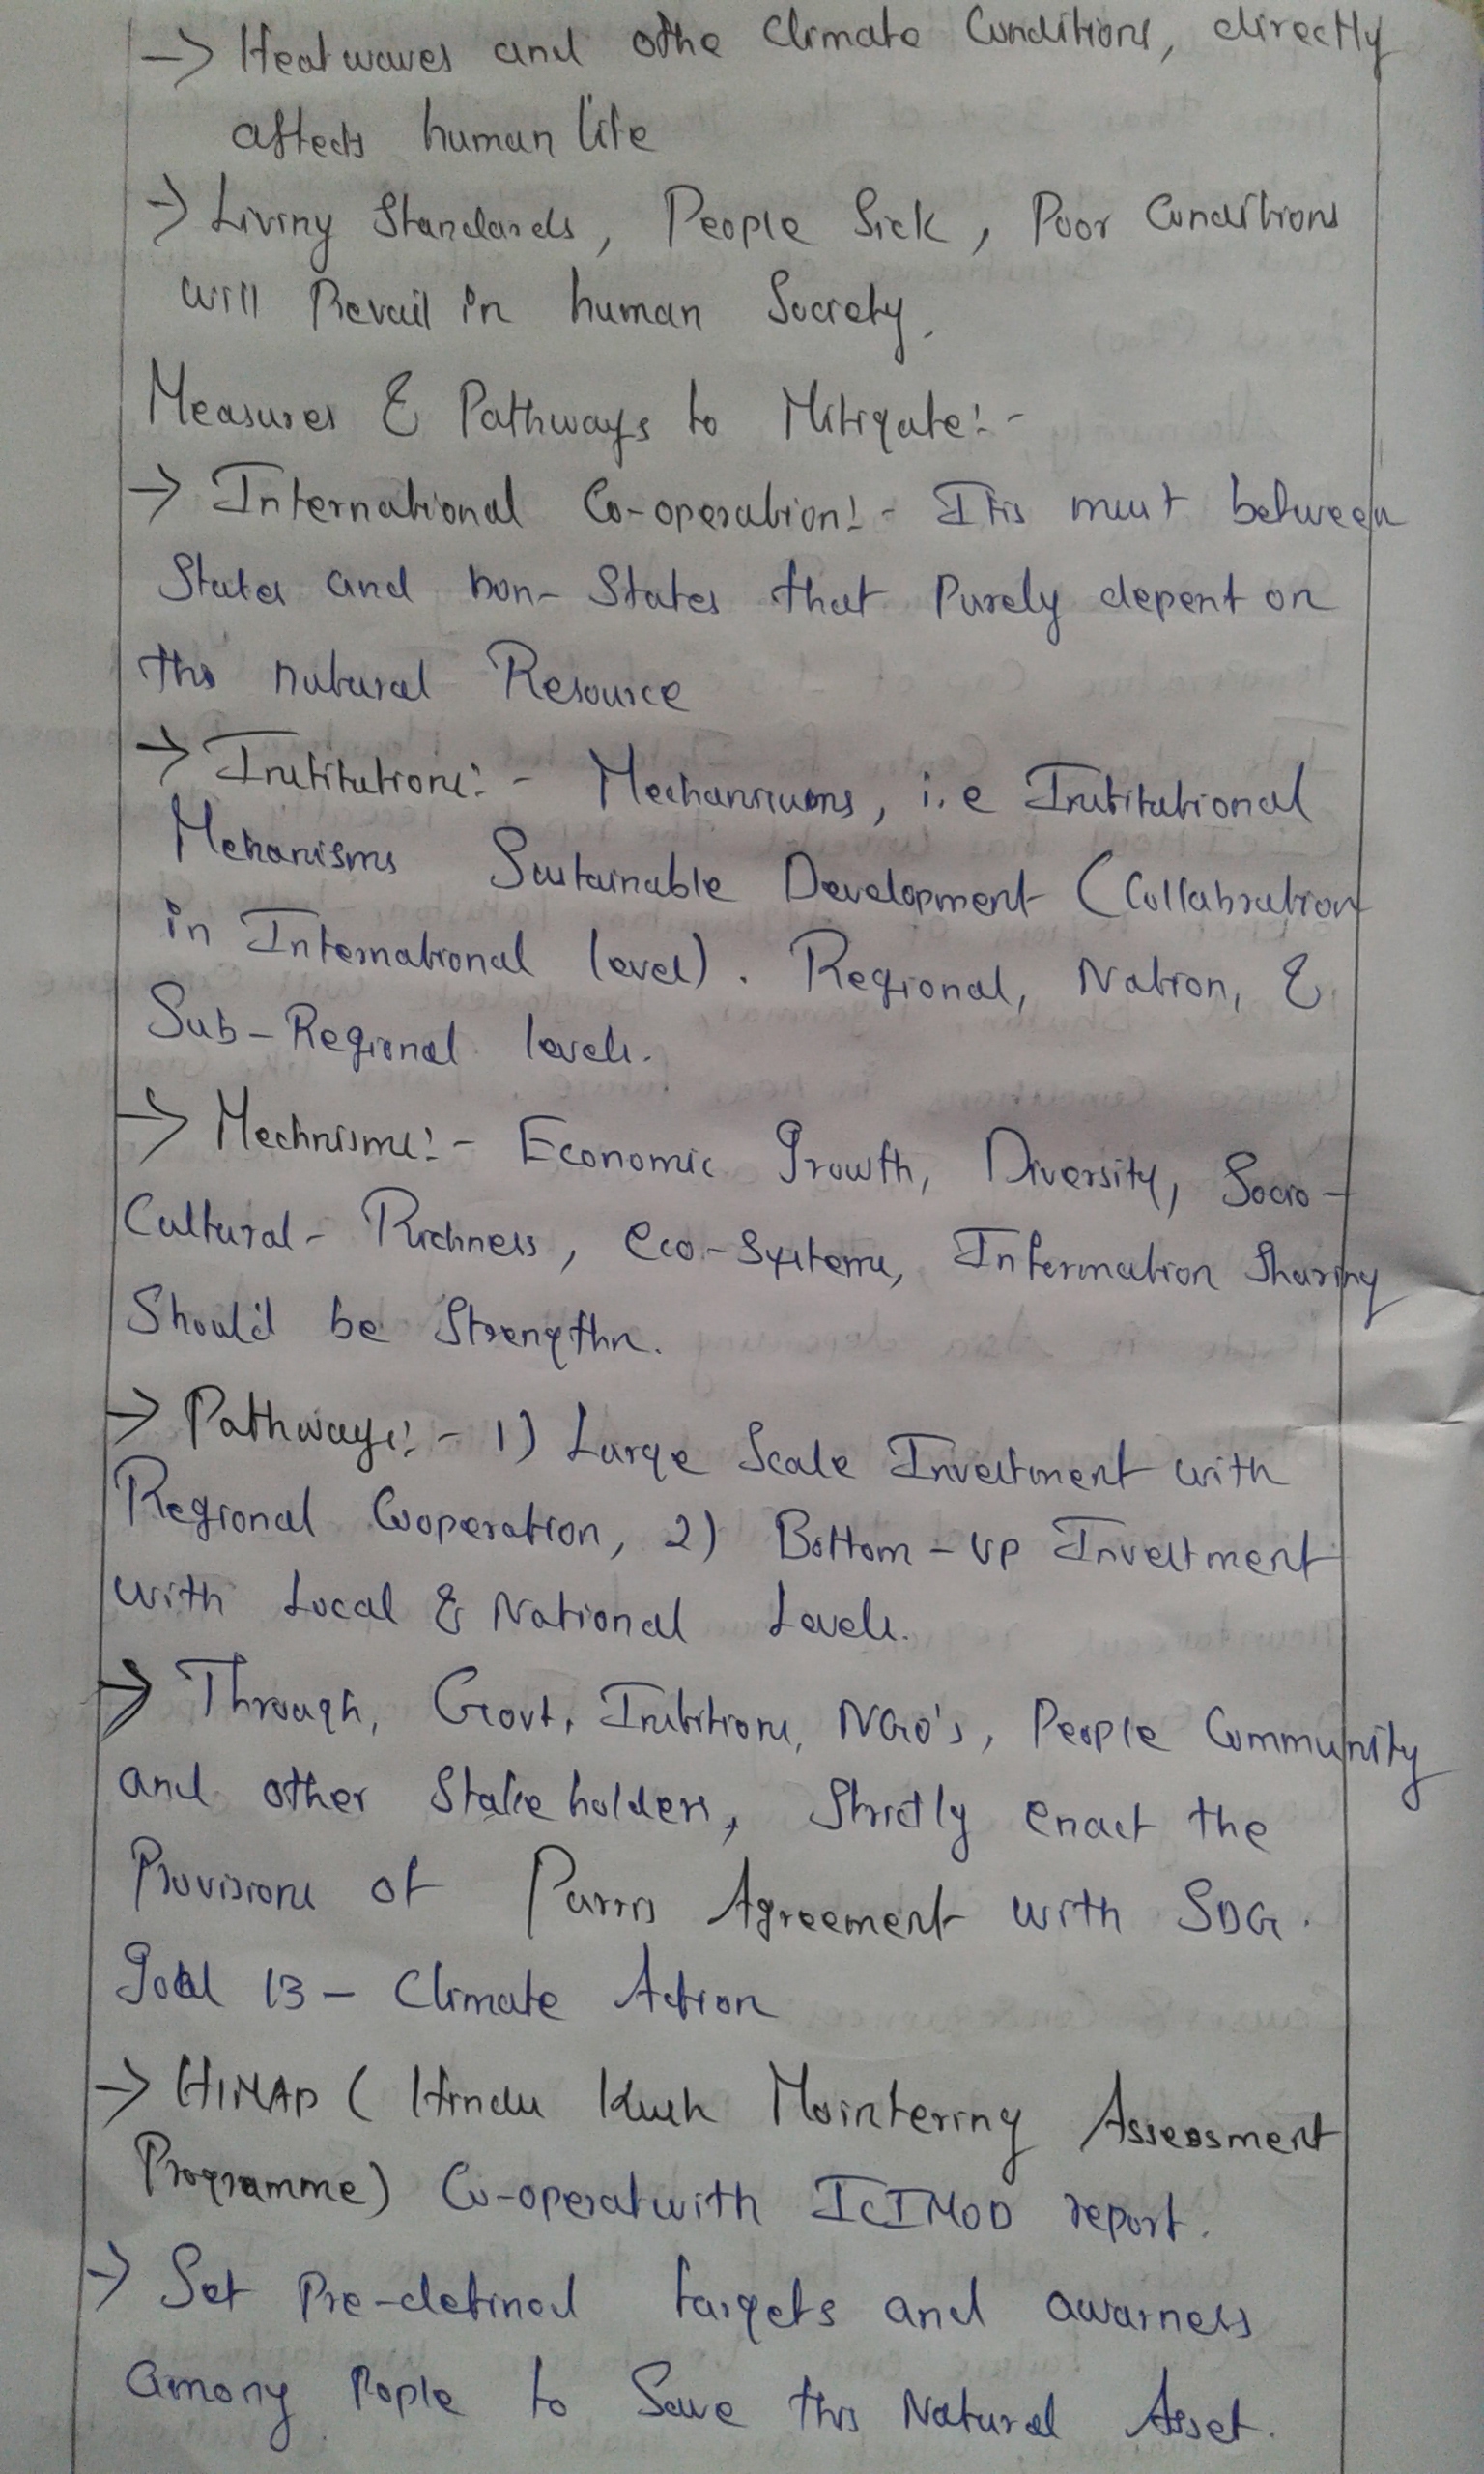 → Heatwaves and othe Climate Conditions, directly
affects human life
→ Living Standards, People Sick, Poor Conditions
will Prevail in human Society.
Measures & Pathways to Mitigate:-
→ International Co-operation:- It is must between
States and non-States that Purely depent on
this natural Resource
→ Institutions:- Mechanisums, i.e Institutional
Mehanisms Sustainable Development (Collabration
in International level). Regional, Nation, &
Sub-Regional levels.
→ Mechnisms:- Economic Growth, Diversity, Socio-
Cultural- Richness, eco-Systems, Information Sharing
Should be Strengthn.
→ Pathways:- 1) Large Scale Investment with
Regional Cooperation, 2) Bottom-up Investment
with Local & National Levels.
→ Through, Govt, Institions, NGO's, People Community
and other Stakeholders, Strictly enact the
Provisions of Parris Agreement with SDG.
goal 13 - Climate Action
→ HIMAP (Hindu Kush Mointering Assessment
Programme) Co-operat with ICIMOD report.
→ Set Pre-defined targets and awarness
among Pople to Save this Natural Asset.